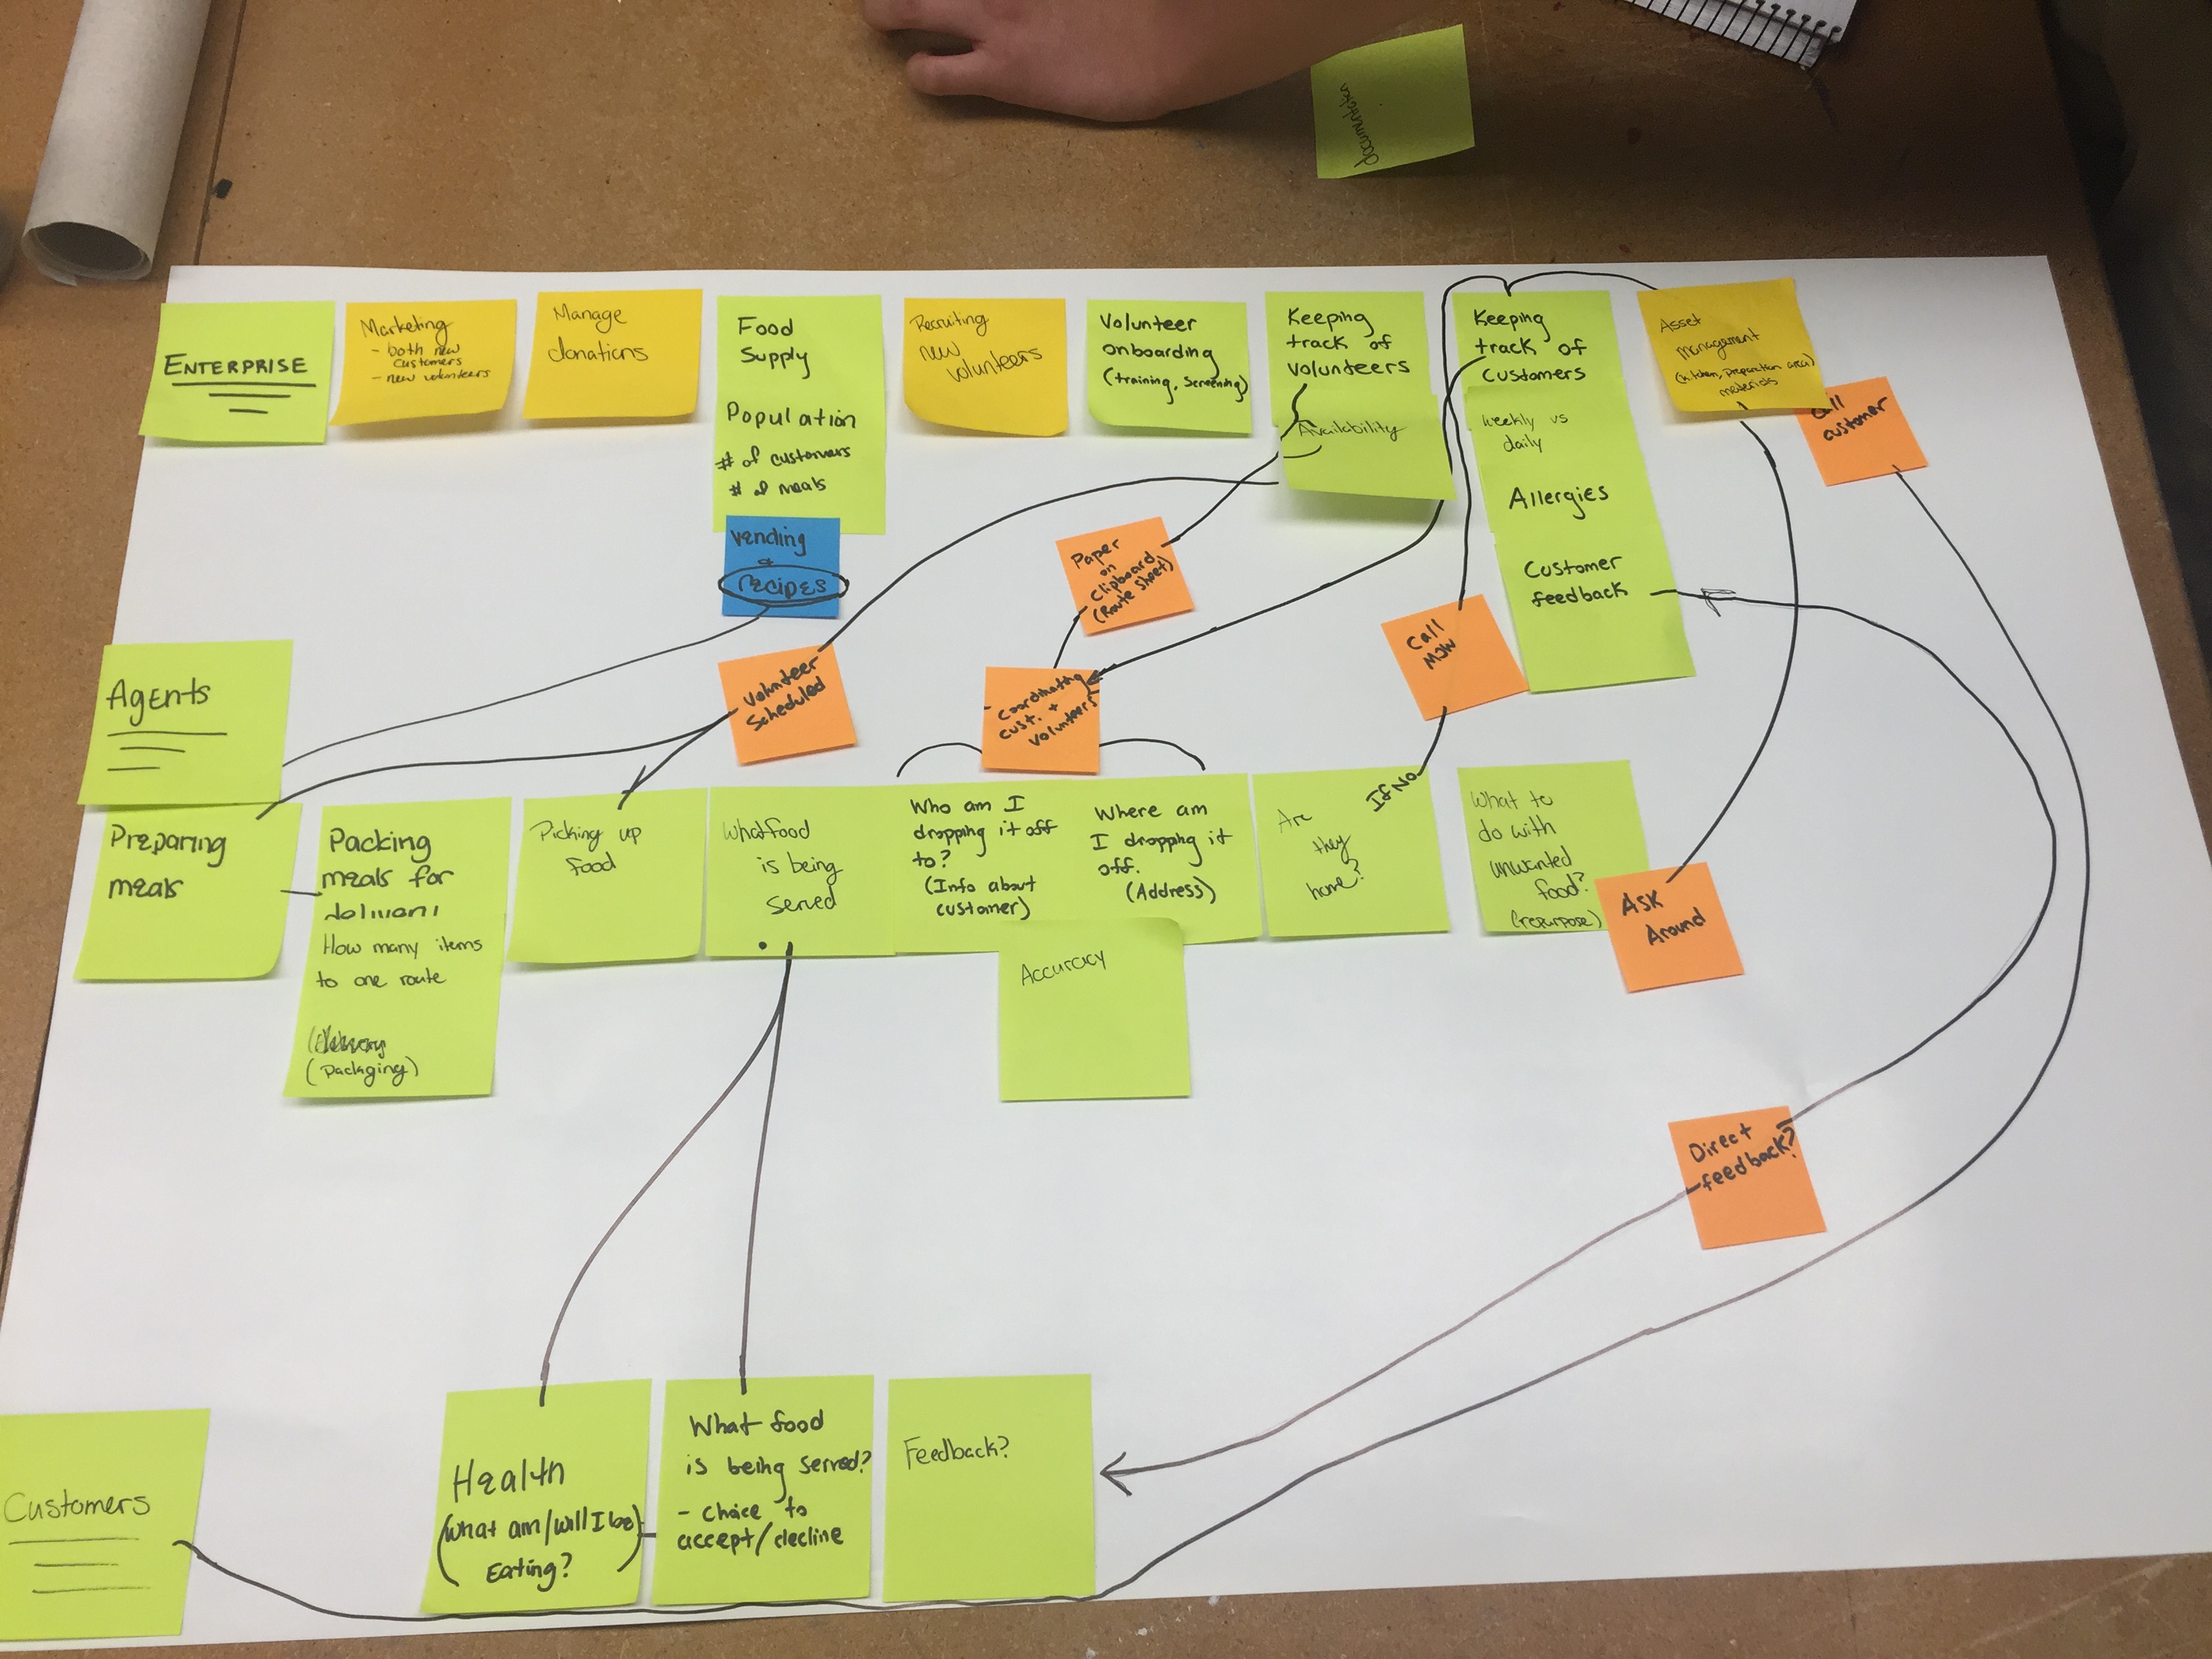 documentation
ENTERPRISE
Marketing
- both new
customers
- new volunteers
Manage
donations
Food
Supply
Population
# of customers
# of meals
Recruiting
new
volunteers
Volunteer
onboarding
(training, screening)
Keeping
track of
volunteers
Availability
Keeping
track of
customers
weekly vs
daily
Allergies
Customer
feedback
Asset
management
(kitchen, preparation area)
materials
Call
customer
vending
&
recipes
Paper
on
Clipboard
(Route sheet)
Call
MOW
Agents
Volunteer
Scheduled
- Coordinating
cust. +
volunteers
Preparing
meals
Packing
meals for
How many items
to one route
(packaging)
Picking up
food
What food
is being
served
Who am I
dropping it off
to?
(Info about
customer)
Where am
I dropping it
off.
(Address)
Accuracy
Are
they
home?
If No
What to
do with
unwanted
food?
(repurpose)
Ask
Around
Direct
feedback?
Customers
Health
(What am/will I be)
Eating?
What food
is being served?
- choice to
accept/decline
Feedback?